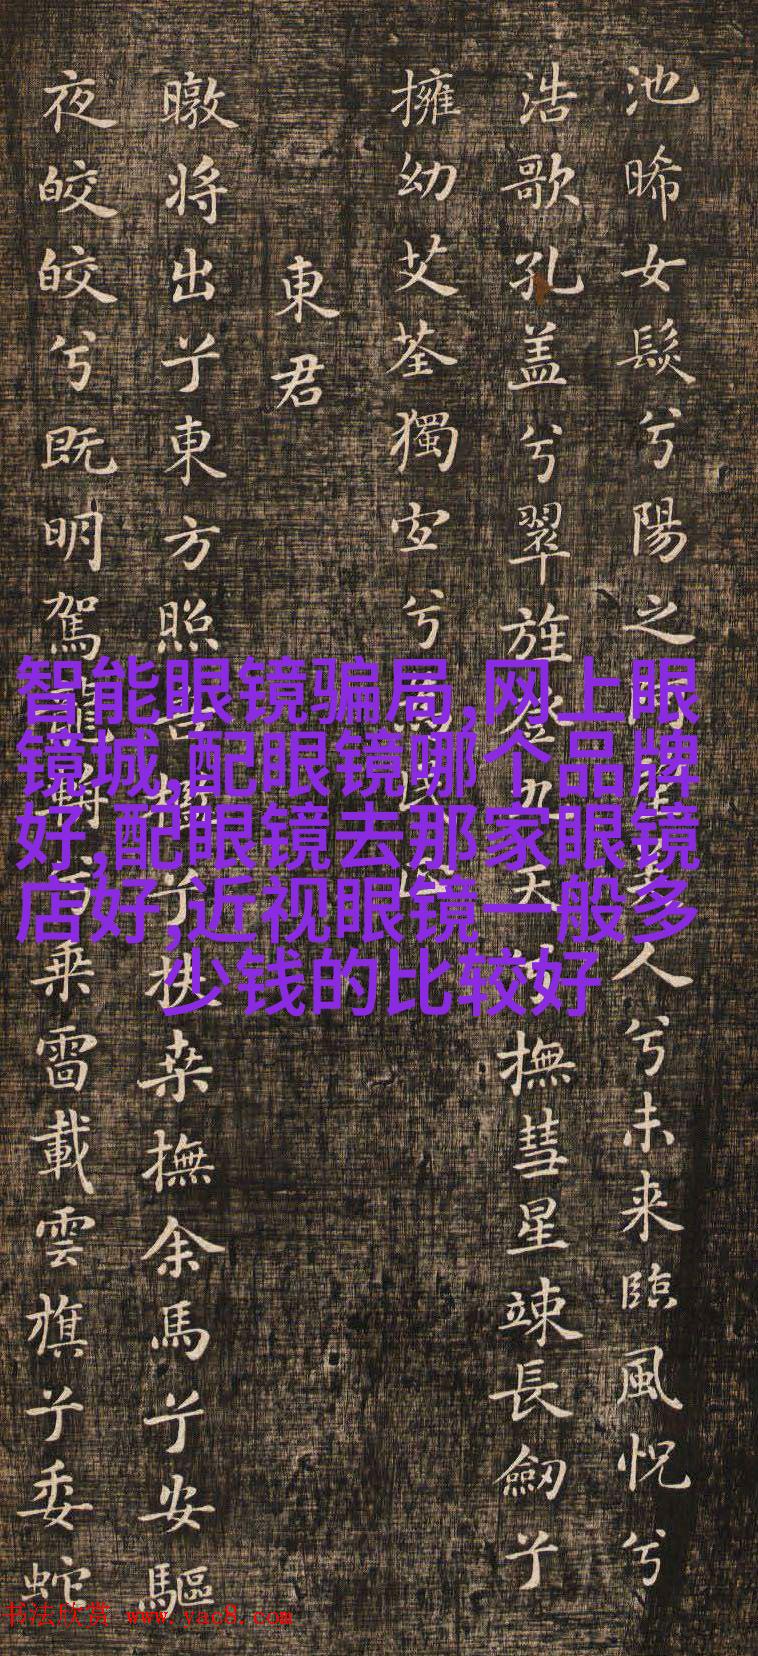 池晞女髮兮陽之阿望美人兮未来臨風怳兮
浩歌孔盖兮翠旌登九天兮撫彗星竦長劒兮
擁幼艾荃獨宜兮為民正
東君
暾将出兮東方照吾檻兮扶桒撫余馬兮安驅
夜皎皎兮既明駕龍輈兮乗雷載雲旗兮委蛇
智能眼镜骗局,网上眼
镜城,配眼镜哪个品牌
好,配眼镜去那家眼镜
店好,近视眼镜一般多
少钱的比较好
书法欣赏 www.yac8.com